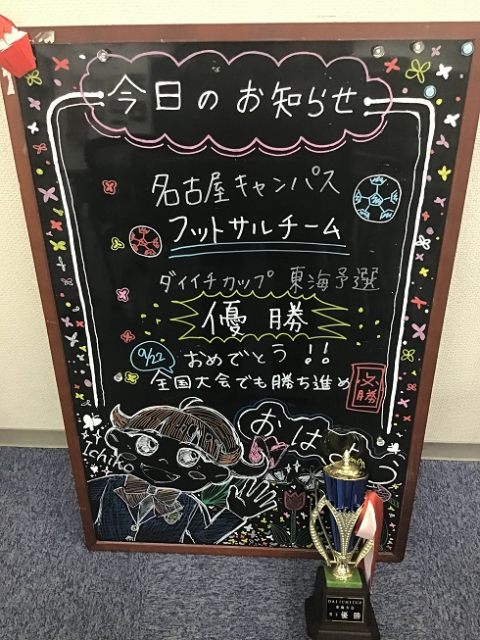 今日のお知らせ
名古屋キャンパス
フットサルチーム
ダイイチカップ 東海予選
優勝
9/22 おめでとう!!
全国大会でも勝ち進め 必勝
おはよう
Ichiko
DAIICHICUP
優勝